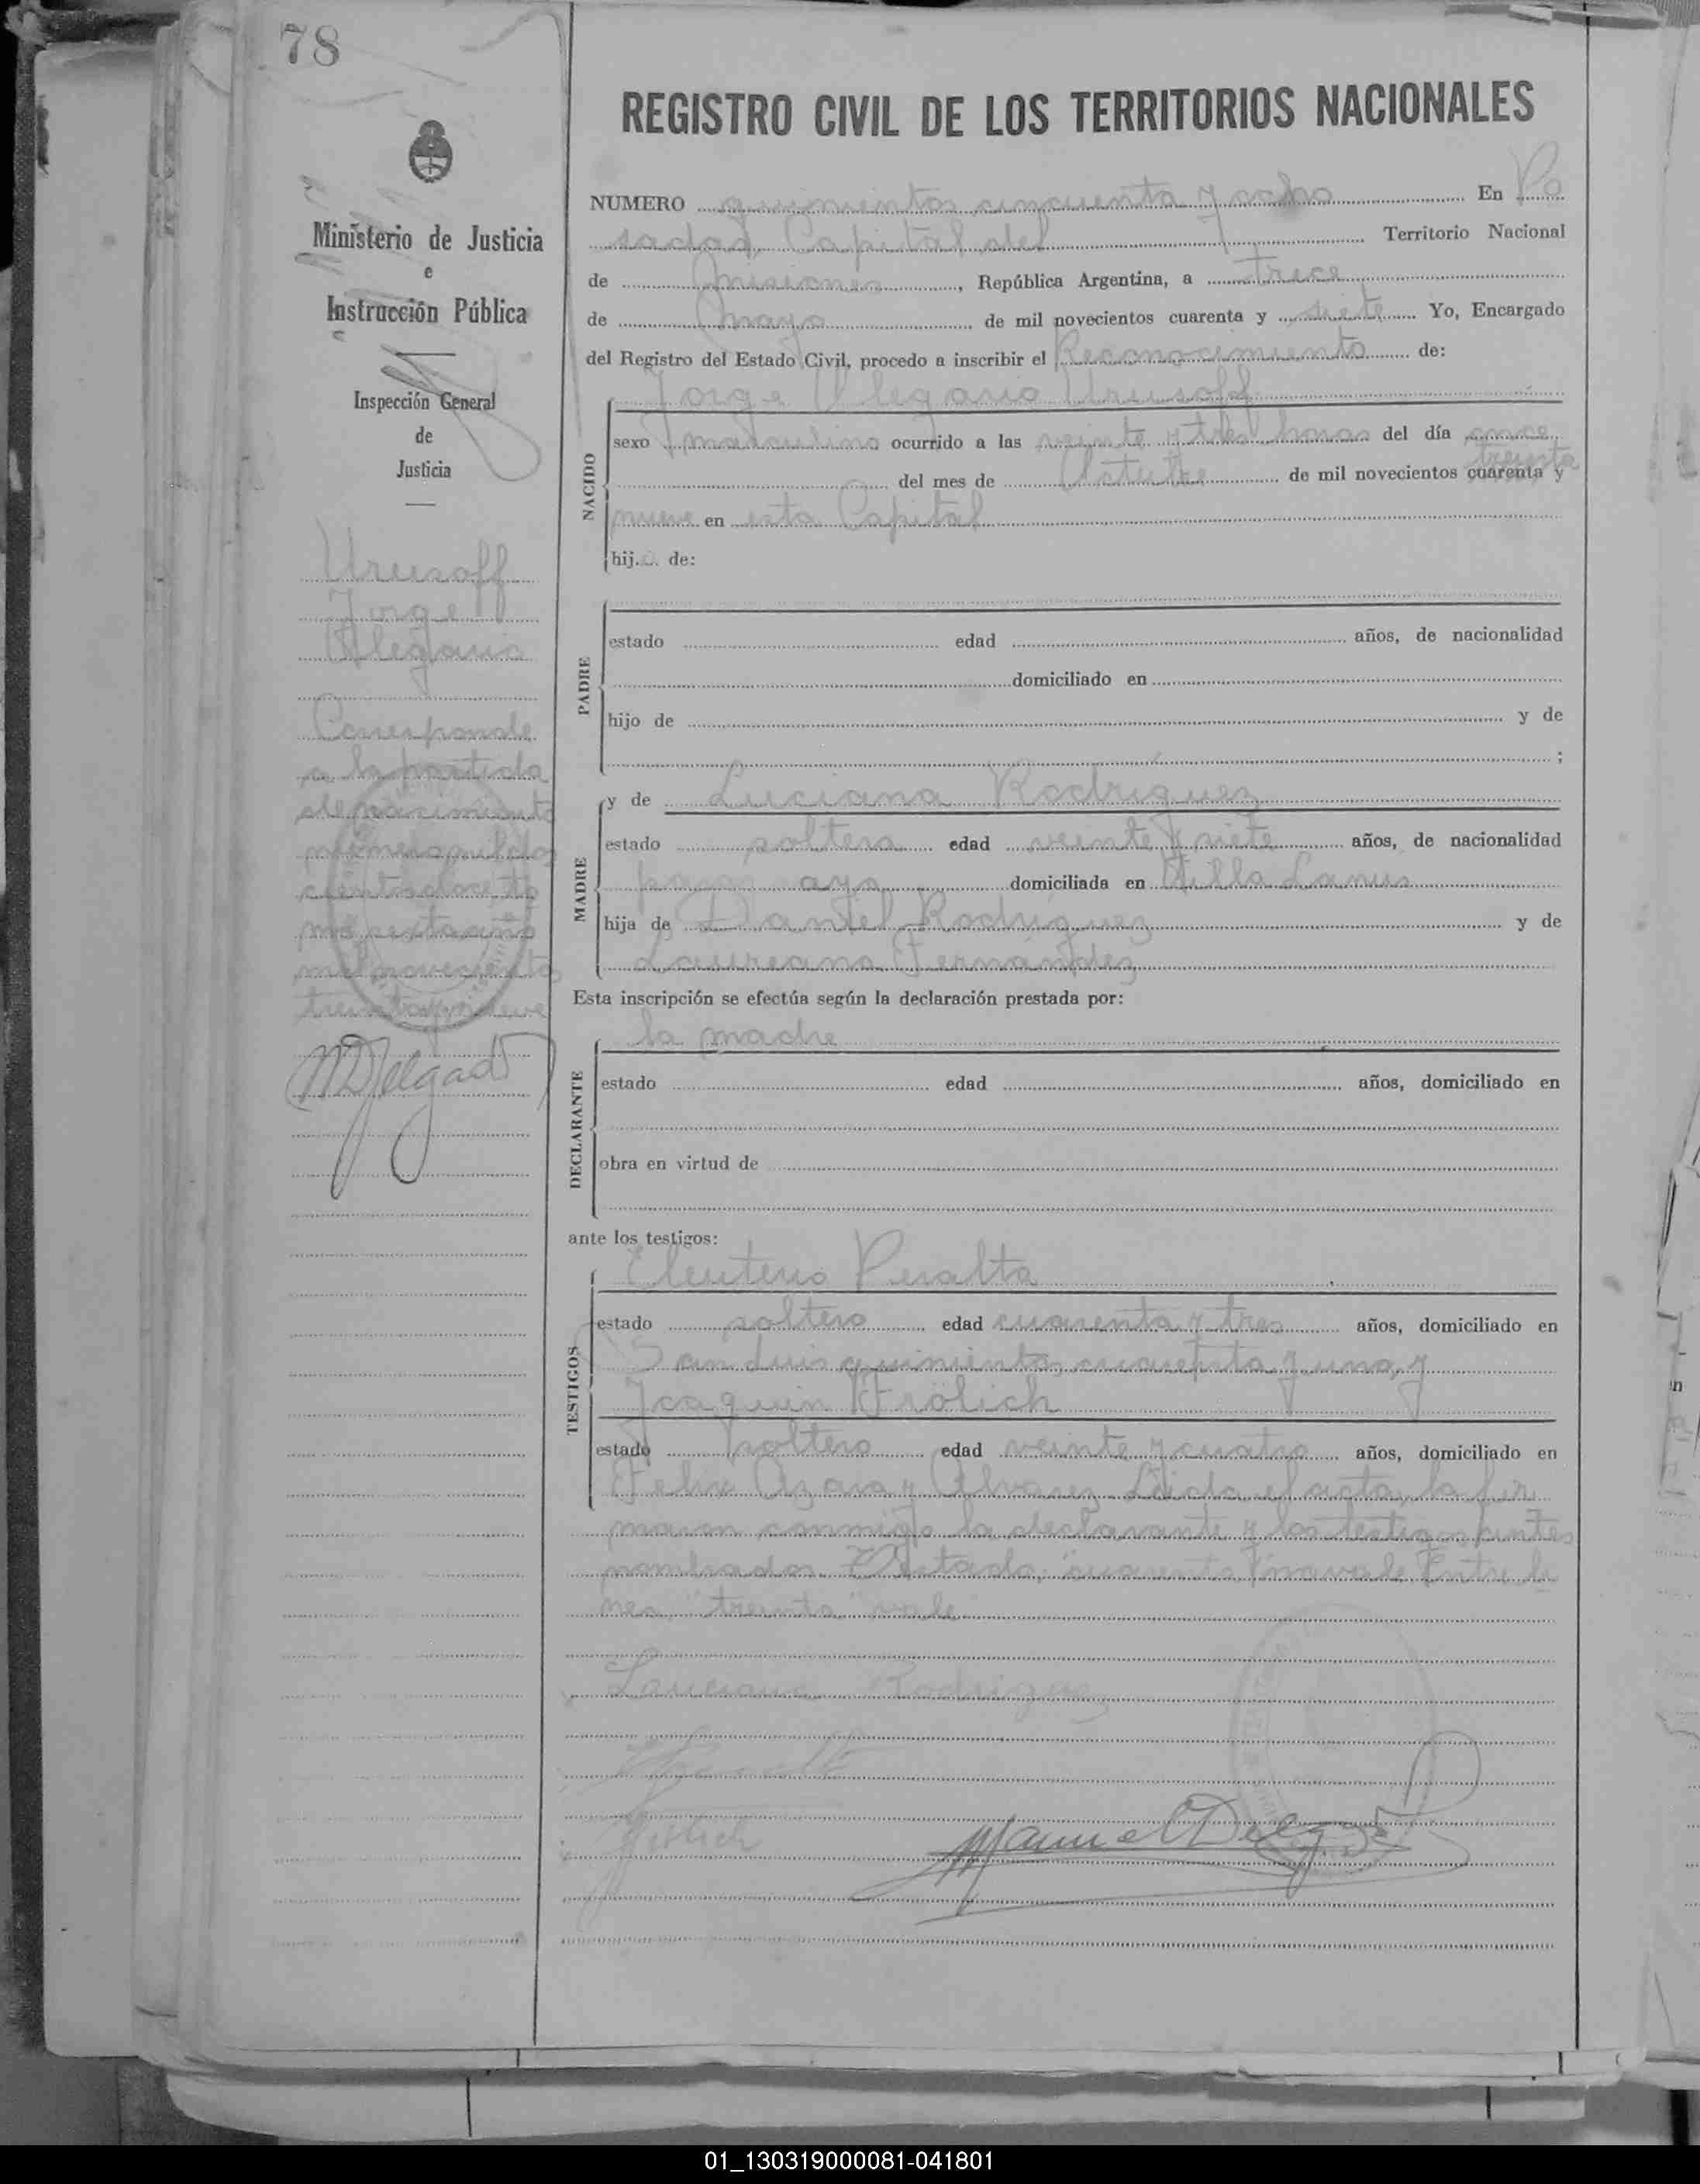 78
REGISTRO CIVIL DE LOS TERRITORIOS NACIONALES
Ministerio de Justicia
e
Instrucción Pública
Inspección General
de
Justicia
Urusoff
Jorge
Olegario
Corresponde
a la partida
de nacimiento
número
mil novecientos
treinta y nueve
MDelgado
NUMERO quinientos cincuenta y ocho En Po
sadas, Capital del Territorio Nacional
de Misiones, República Argentina, a trece
de Mayo de mil novecientos cuarenta y siete Yo, Encargado
del Registro del Estado Civil, procedo a inscribir el Reconocimiento de:
Jorge Olegario Urusoff
NACIDO
sexo masculino ocurrido a las veinte y tres horas del día once
del mes de Octubre de mil novecientos cuarenta y treinta
nueve en esta Capital
hijo de:
PADRE
estado edad años, de nacionalidad
domiciliado en
hijo de y de
;
MADRE
y de Luciana Rodriguez
estado soltera edad veinte y siete años, de nacionalidad
paraguaya domiciliada en Villa Lanus
hija de Daniel Rodriguez y de
Laureana Fernández
Esta inscripción se efectúa según la declaración prestada por:
la madre
DECLARANTE
estado edad años, domiciliado en
obra en virtud de
ante los testigos:
TESTIGOS
Eleuterio Peralta
estado soltero edad cuarenta y tres años, domiciliado en
San Luis quinientos cuarenta y uno, y
Joaquin Frölich
estado soltero edad veinte y cuatro años, domiciliado en
Felix Azara y Alvarez. Leida el acta, la fir
maron conmigo la declarante y los testigos
nombrados. Testado, "cuarenta" no vale. Entre li
neas, "treinta" vale
Luciana Rodriguez
Manuel Delgado
01_130319000081-041801